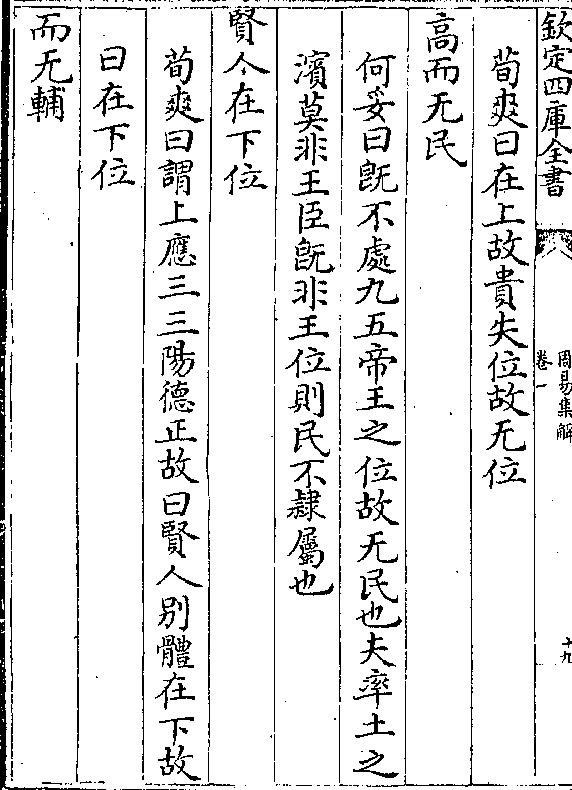 欽定四庫全書
周易集解
卷一
十九
荀爽曰在上故貴失位故无位
高而无民
何妥曰既不處九五帝王之位故无民也夫率土之
濱莫非王臣既非王位則民不隷屬也
賢人在下位
荀爽曰謂上應三三陽德正故曰賢人别體在下故
曰在下位
而无輔